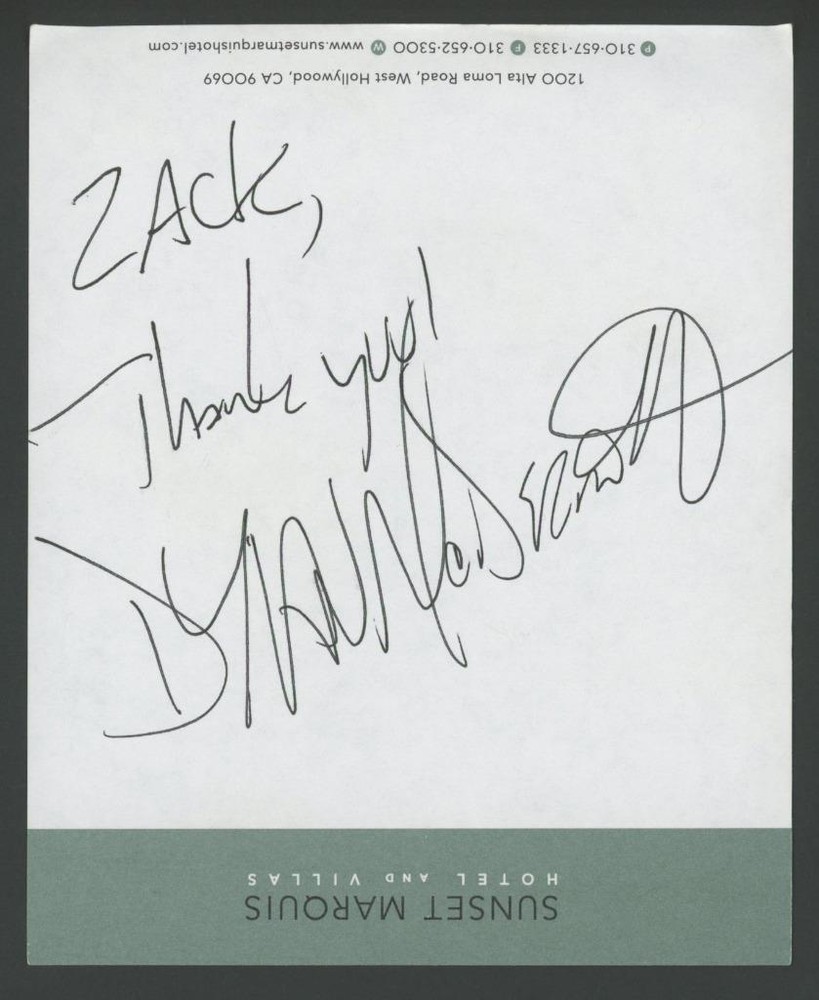 ZACK,
Thank you!
DYLAN McDERMOTT
1200 Alta Loma Road, West Hollywood, CA 90069
P 310-657-1333 F 310-652-5300 W www.sunsetmarquishotel.com
SUNSET MARQUIS
HOTEL AND VILLAS